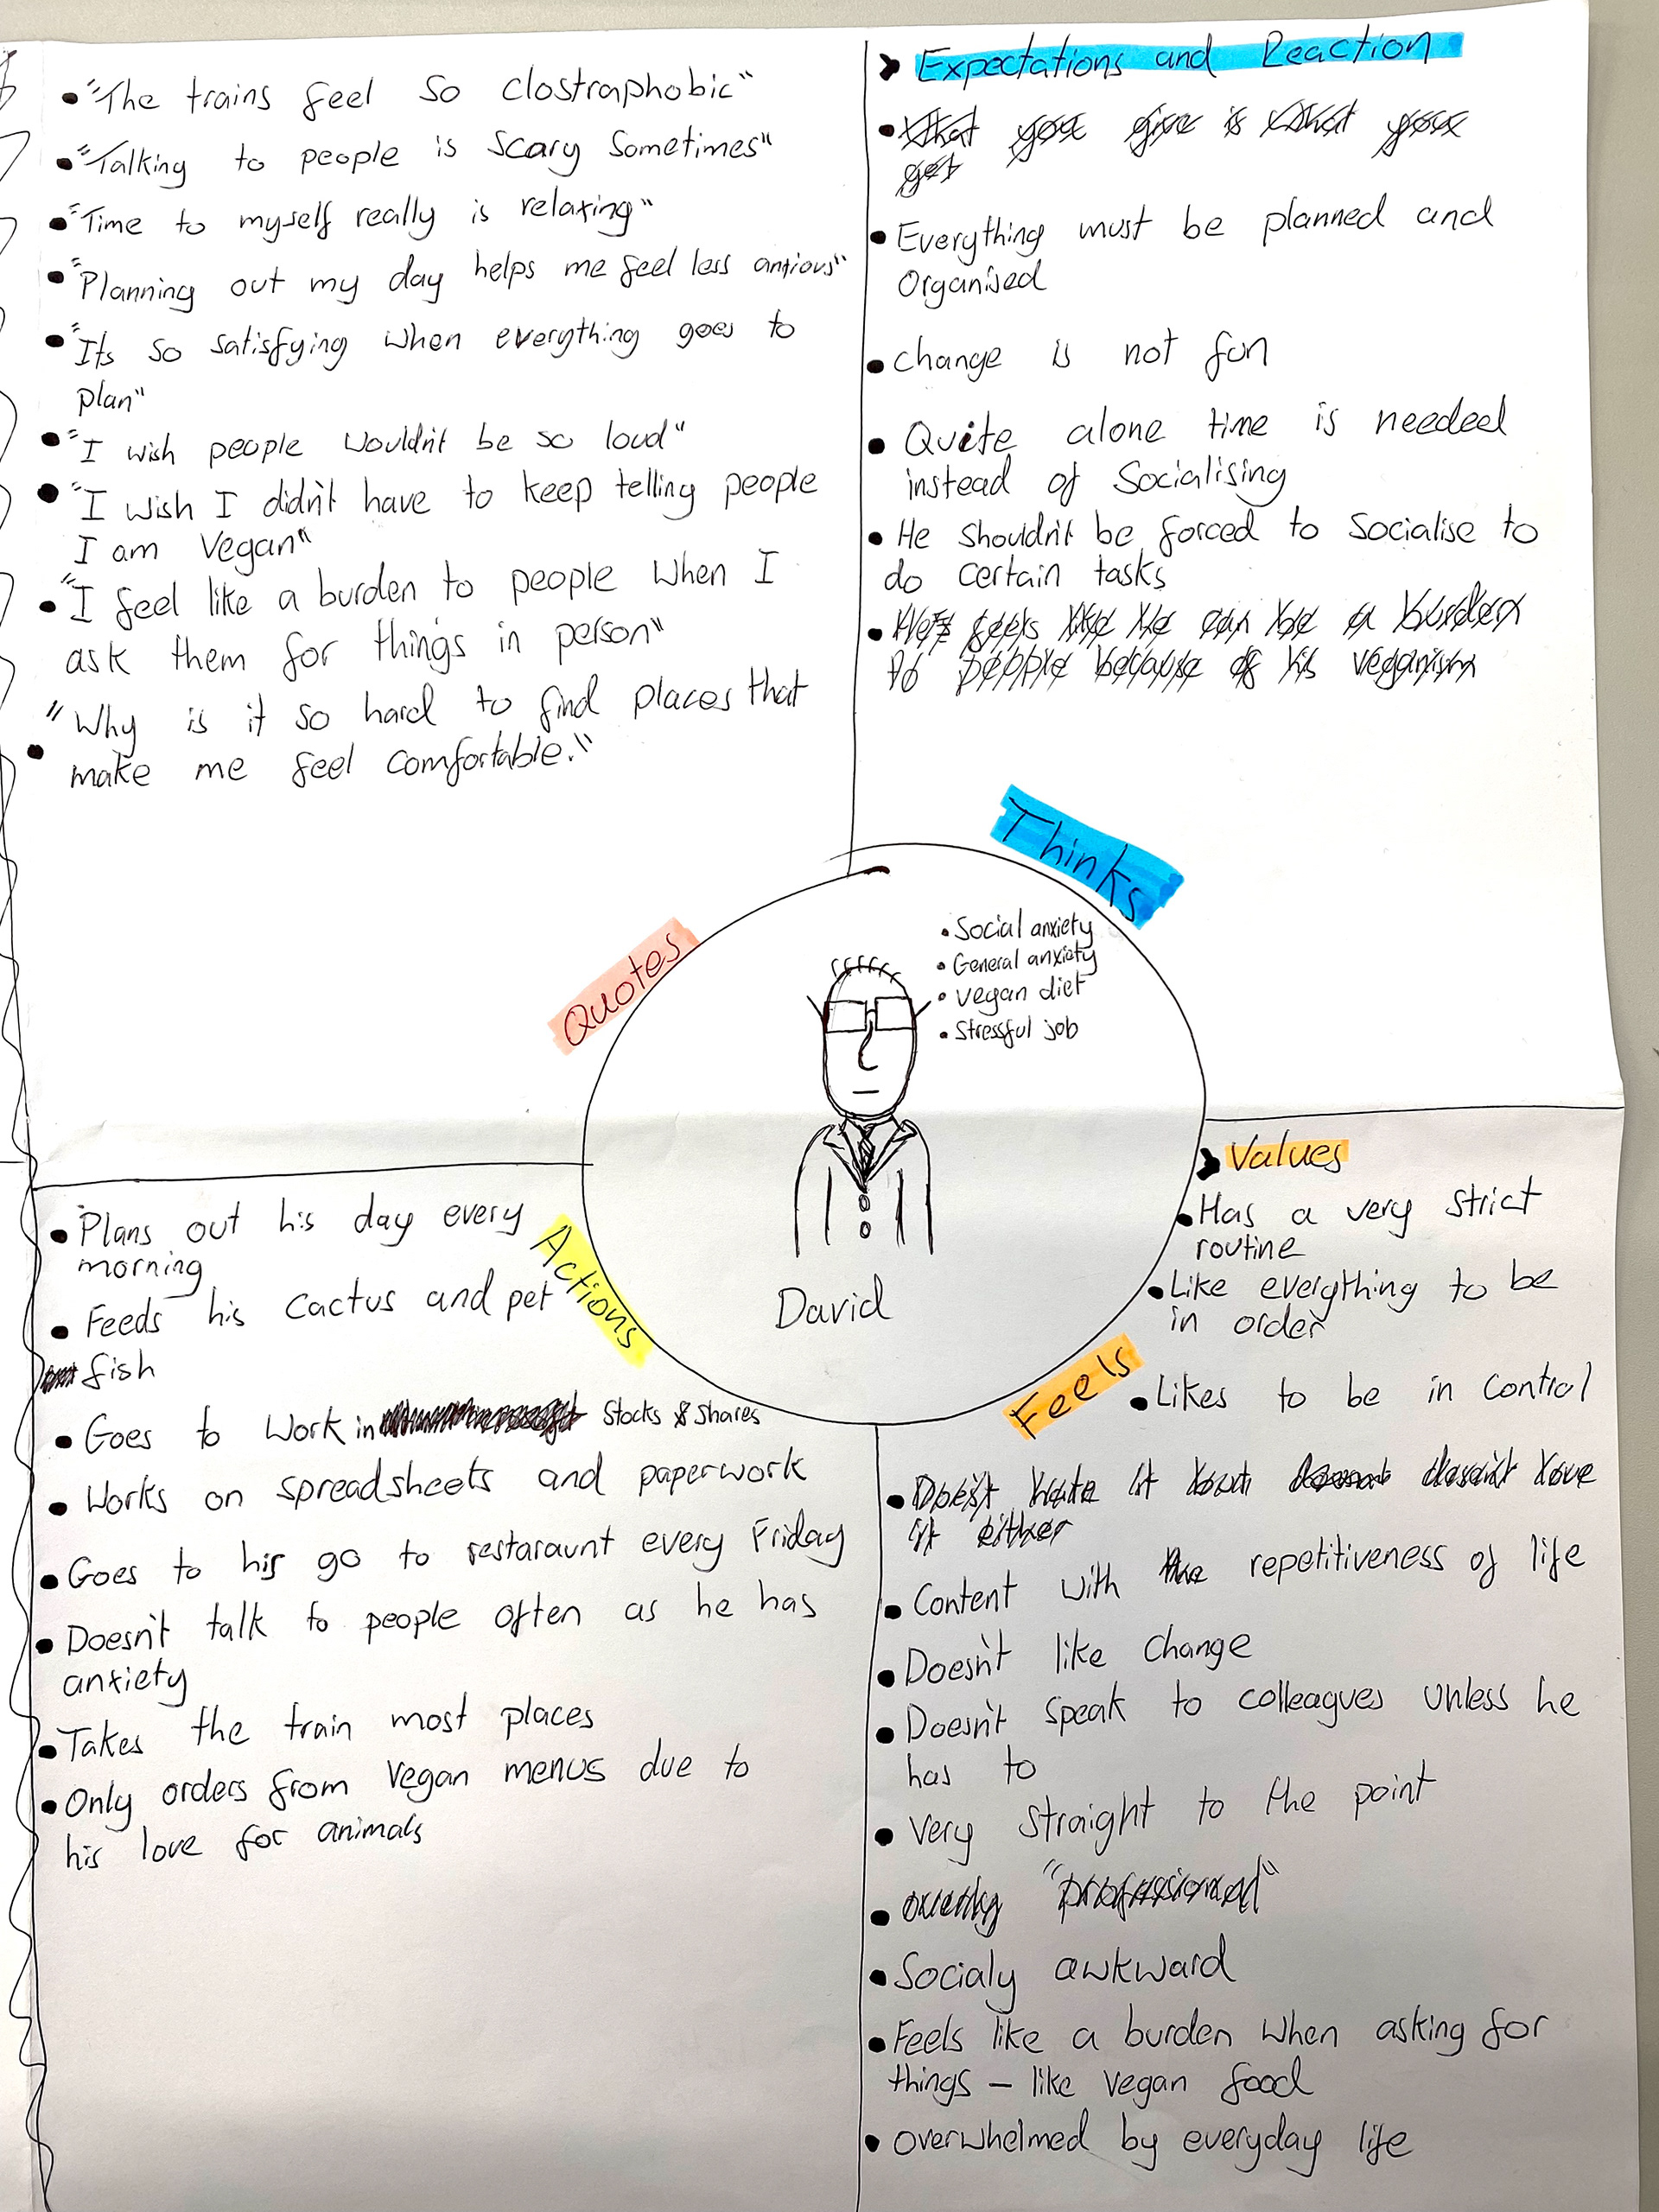 • "The trains feel so clostraphobic"
• "Talking to people is scary sometimes"
• "Time to myself really is relaxing"
• "Planning out my day helps me feel less antious"
• "Its so satisfying when everything goes to
plan"
• "I wish people wouldn't be so loud"
• "I wish I didn't have to keep telling people
I am vegan"
• "I feel like a burden to people when I
ask them for things in person"
"Why is it so hard to find places that
• make me feel comfortable."
Expectations and Reaction
• What you give is what you
get
• Everything must be planned and
Organised
• change is not fun
• Quite alone time is needed
instead of Socialising
• He shouldn't be forced to socialise to
do certain tasks
• feels like he can be a burden
to people because of his veganism
Quotes
Thinks
• Social anxiety
• General anxiety
• vegan diet
• stressful job
David
Actions
Feels
• Plans out his day every
morning
• Feeds his cactus and pet
fish
• Goes to work in Stocks & Shares
• Works on spreadsheets and paperwork
• Goes to his go to restaraunt every Friday
• Doesn't talk to people often as he has
anxiety
• Takes the train most places
• Only orders from vegan menus due to
his love for animals
Values
• Has a very strict
routine
• Like everything to be
in order
• Likes to be in control
• Doesn't hate it but doesn't love
it either
• Content with the repetitiveness of life
• Doesn't like change
• Doesn't speak to colleagues unless he
has to
• very straight to the point
• "professional"
• Socialy awkward
• Feels like a burden when asking for
things – like vegan food
• overwhelmed by everyday life